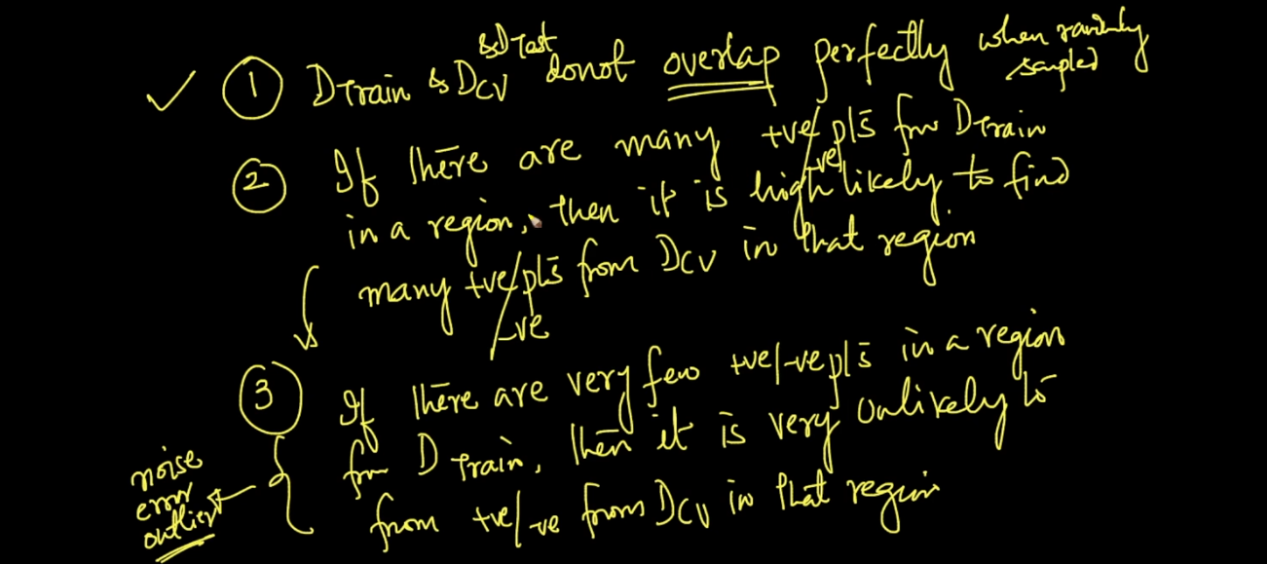 & D Test
① DTrain & DCV donot overlap perfectly when randomly sampled
② If there are many +ve/-ve pts from DTrain
in a region, then it is high likely to find
many +ve/-ve pts from DCV in that region
③ If there are very few +ve/-ve pts in a region
from D Train, then it is very unlikely to
from +ve/-ve from DCV in that region
noise
error
outlier